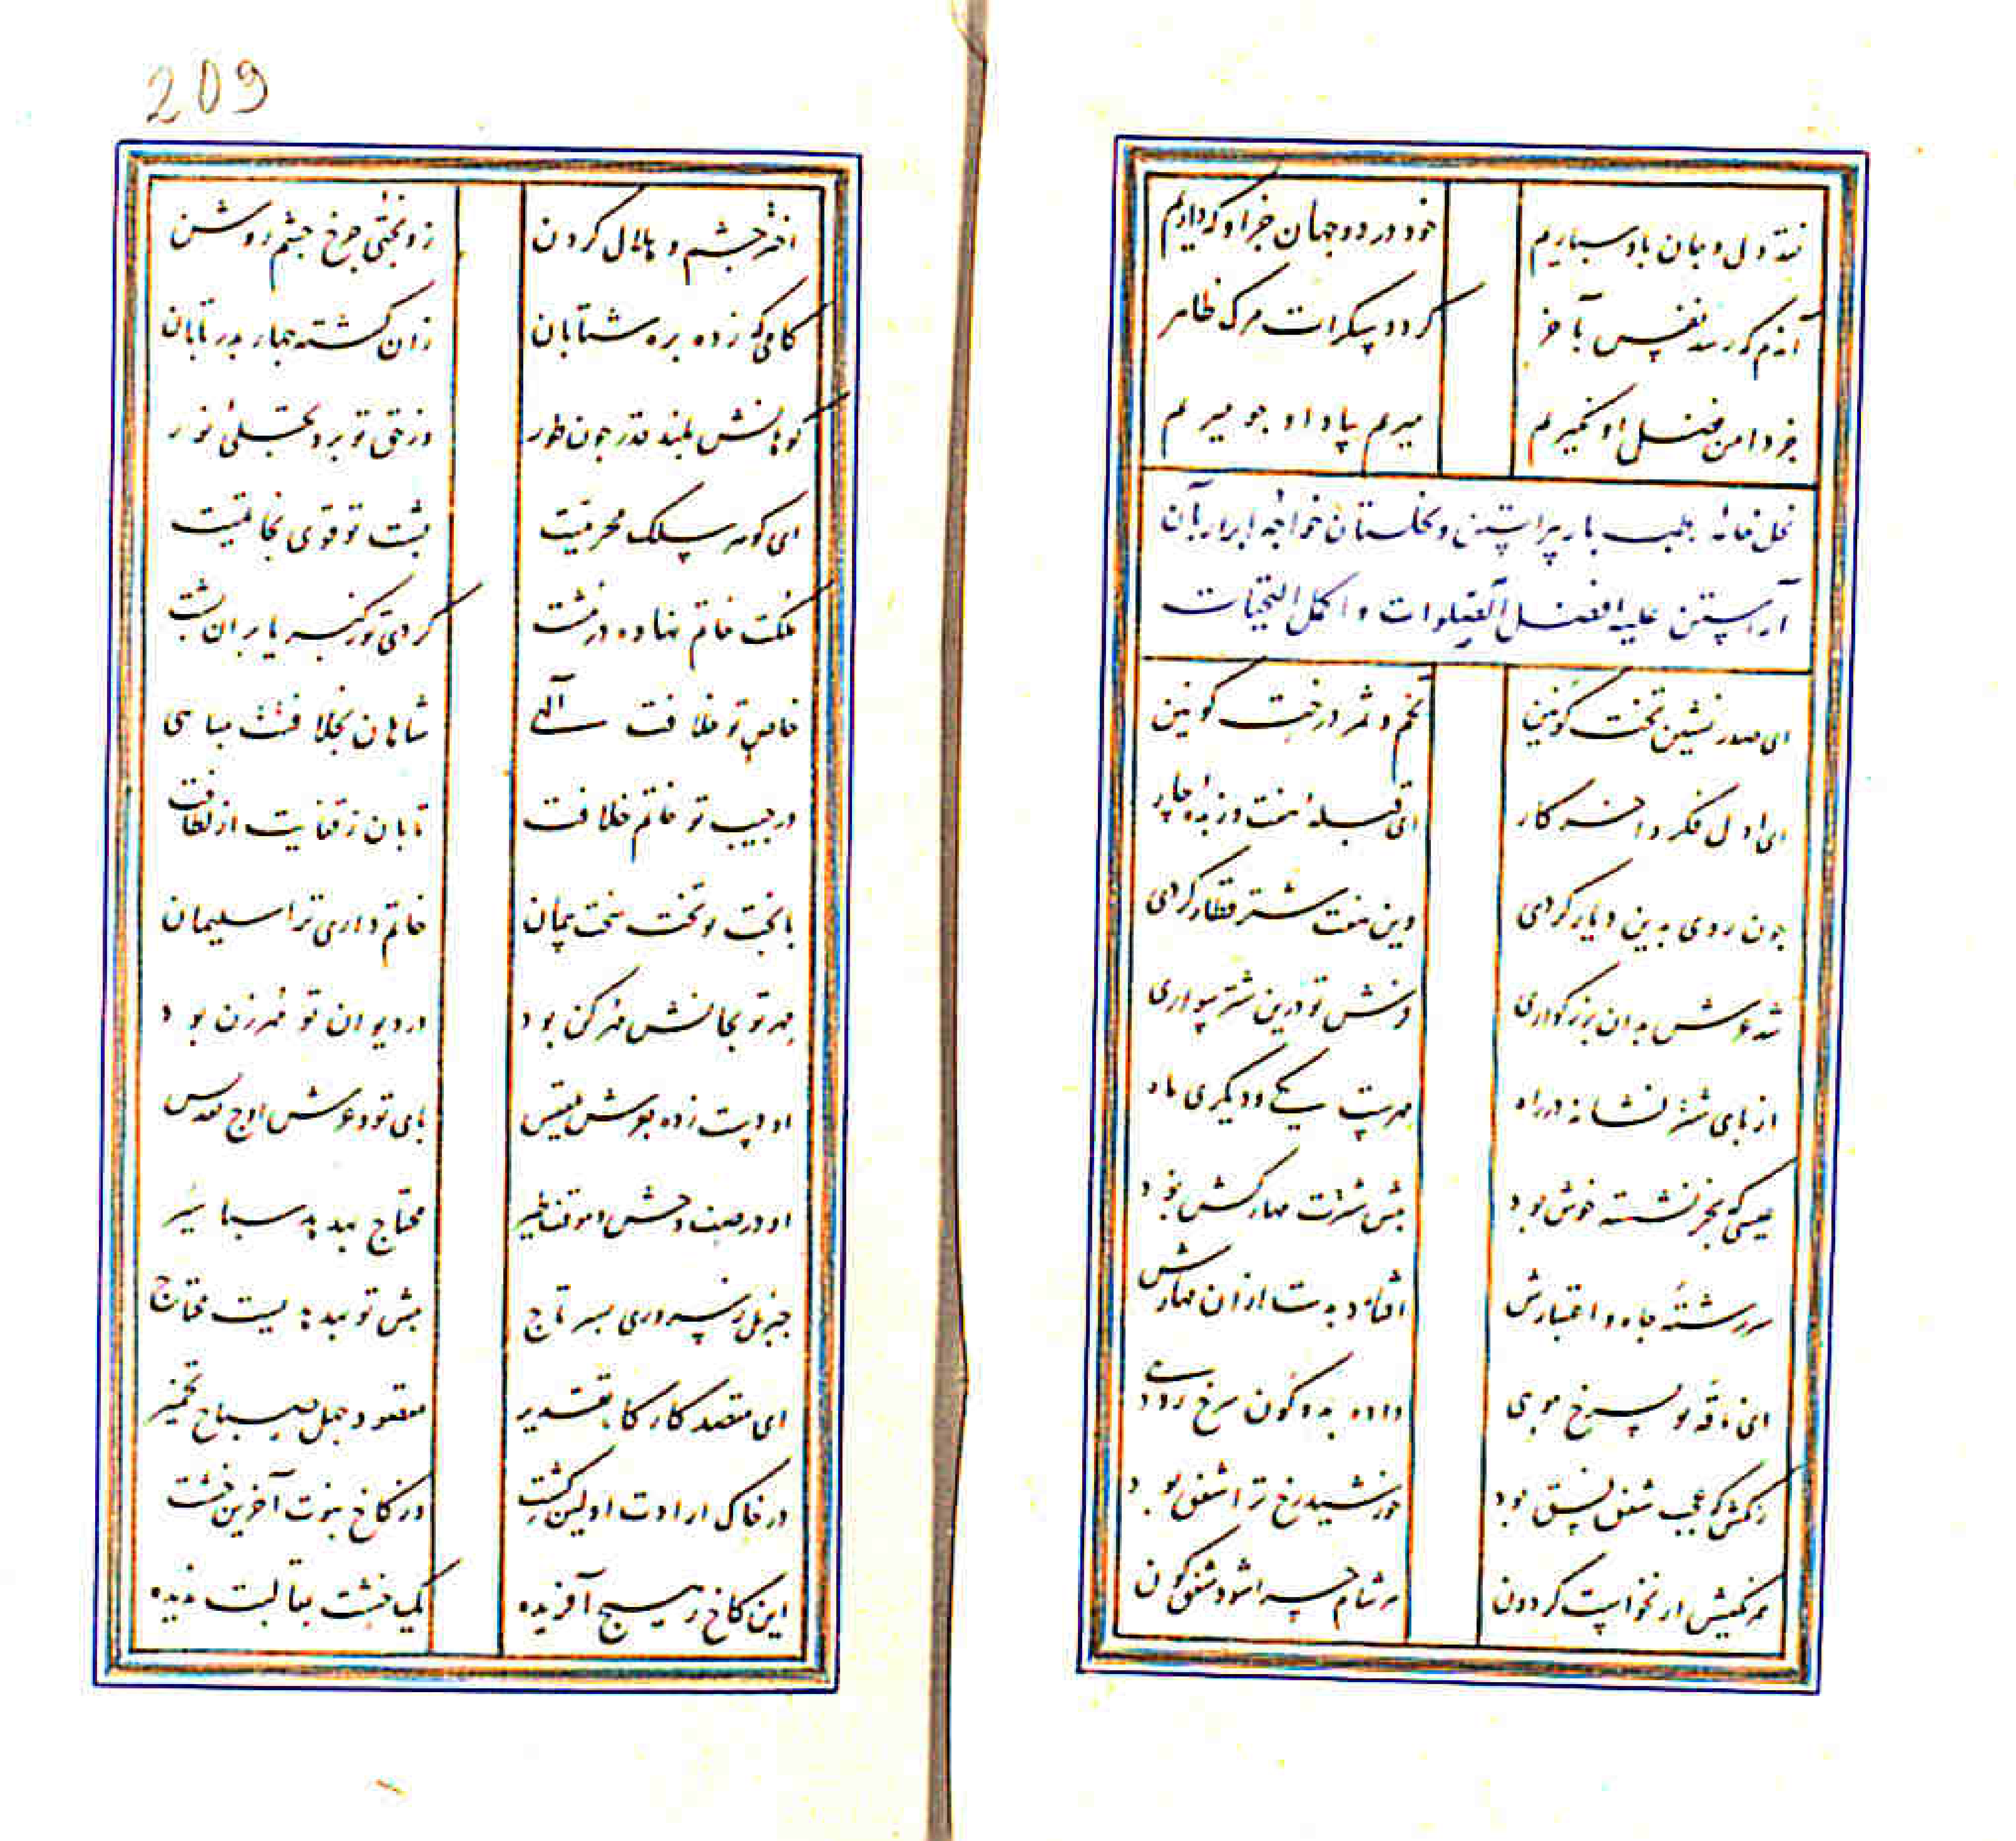 نقد دل و جان باو سپاریم خود در دو جهان جز او که داریم
آندم که رسد نفس بآخر گردد سکرات مرگ ظاهر
جز دامن فضل او نگیریم میریم بیاد او چو میریم
نخل خامه بطیب بار پیراستن و نخلستان خواجه ابرار بآن
آراستن علیه افضل الصلوات و اکمل التحیات
ای صدر نشین تخت کونین تخم و ثمر درخت کونین
ای اول فکر و آخر کار ای قبله هفت و زبده چار
چون روی بدین دیار کردی وین هفت شتر قطار کردی
شد عرش بدان بزرگواری فرش تو درین شتر سواری
از پای شتر نشانه در راه مهرست یکی و دیگری ماه
عیسی که بخر نشسته خوش بود پیش شترت مهارکش بود
سررشته جاه و اعتبارش افتاد بدست از آن مهارش
ای ناقه تو بسرخ مویی داده بدو کون سرخ رویی
رنگش که عجب شفق نسق بود خورشید رخ ترا شفق بود
همرنگیش ار نخواست گردون هر شام چرا شود شفق گون
اختر چشم و هلال گردن زو بختی چرخ چشم روشن
گامی که زده بره شتابان زان گشته چهار بدر تابان
کوهانش بلند قدر چون طور وز حق تو برو تجلی نور
ای گوهر سلک محرمیت پشت تو قوی بخاتمیت
ملکت خاتم نهاده در مشت کردی تو ز کبریا بر آن پشت
خاص تو خلافت الهی شاهان بخلافتت مباهی
در جیب تو خاتم خلافت تابان ز قفایت از لطافت
با بخت و تخت سخت پیمان خاتم داری ترا سلیمان
مهر تو بجانش مهر کن بود در دیوان تو مهر زن بود
او دست زده بعرش بلقیس پای تو و عرش اوج تقدیس
او در صف وحش و موقف طیر محتاج بهدهد سبا سیر
جبریل ز سروری بسر تاج پیش تو بهدهدیست محتاج
ای مقصد کارگاه تقدیر مقصود چهل صباح تخمیر
در خاک ارادت اولین کشت در کاخ نبوت آخرین خشت
این کاخ ز هیچ آفریده یک خشت بقالبت ندیده
209